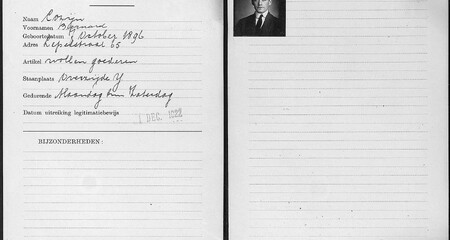 Naam Conijn
Voornamen Bernard
Geboortedatum October 1896
Adres Lepelstraat 65
Artikel wollen goederen
Staanplaats Overzijde Y
Gedurende Maandag t/m Zaterdag
Datum uitreiking legitimatiebewijs 1 DEC. 1922
BIJZONDERHEDEN: